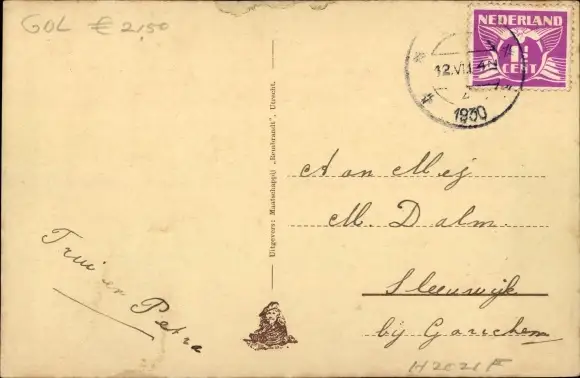 GOL € 2,50
NEDERLAND
1½
CENT
12.VI.
1930
Aan Mej
M. Dalm.
Sleeuwijk
bij Gorrichem
Trui en Petra
Uitgevers: Maatschappij „Rembrandt", Utrecht.
H2021F